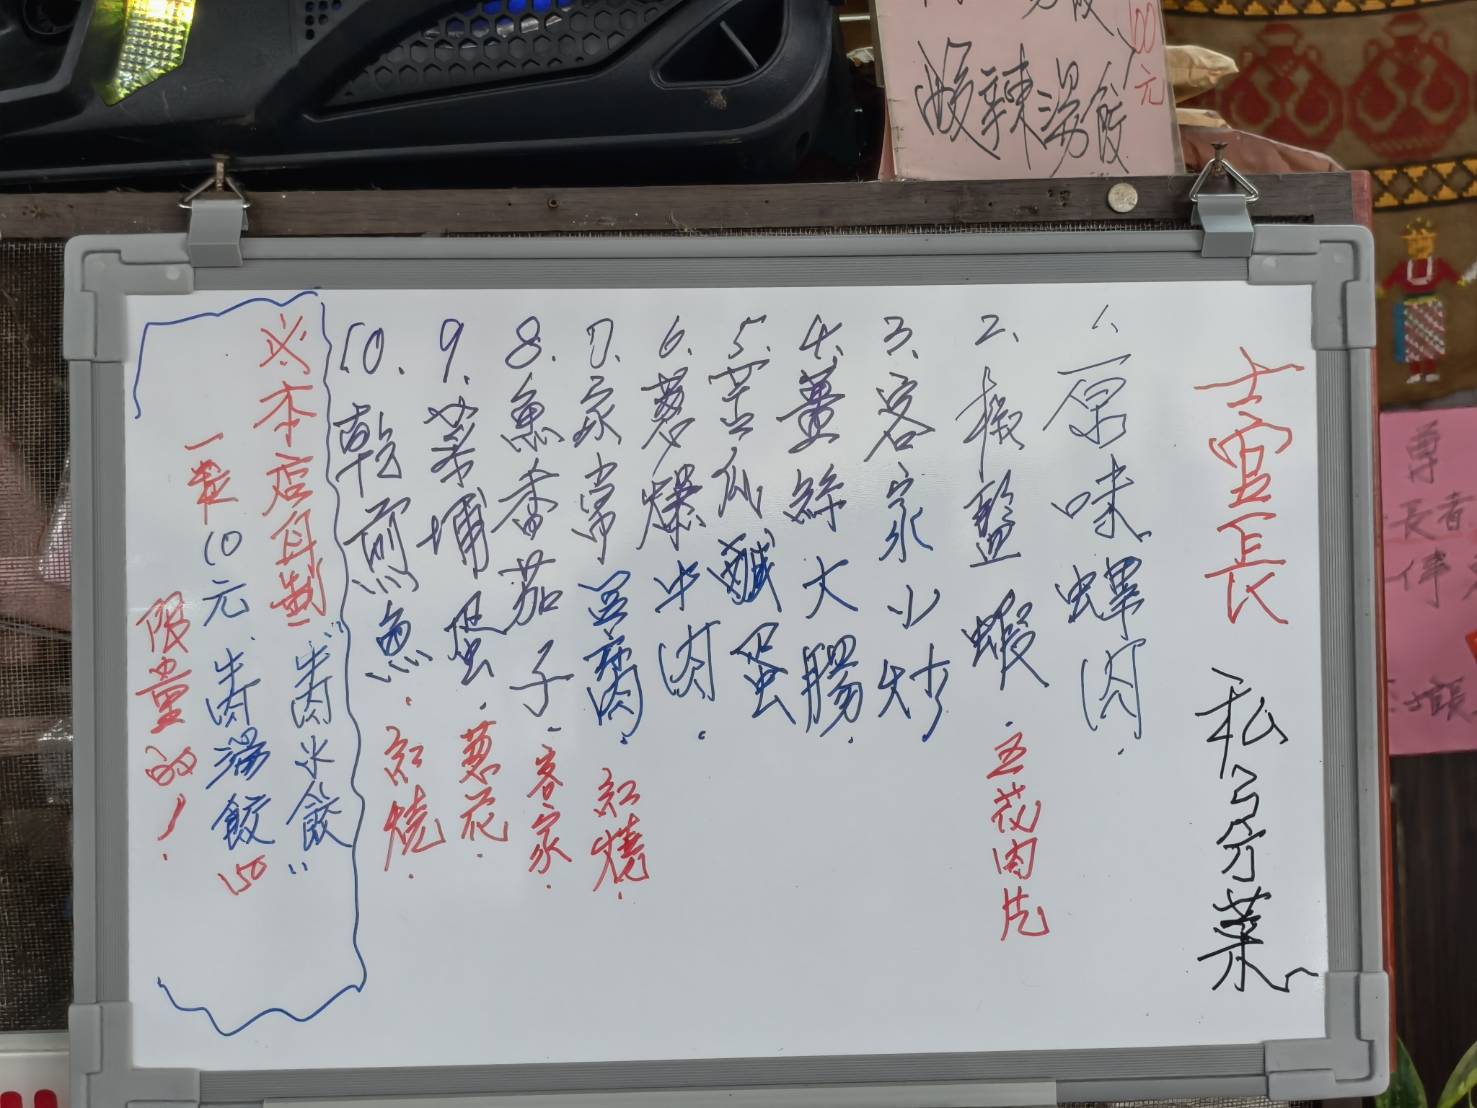 酸辣湯餃
100元
士官長 私房菜
1. 原味蟬肉.
2. 椒鹽蝦. 五花肉片
3. 客家小炒
4. 薑絲大腸.
5. 苦瓜鹹蛋
6. 蔥爆牛肉.
7. 家常豆腐. 紅燒.
8. 魚香茄子. 客家.
9. 菜埔蛋. 蔥花.
10. 乾煎魚. 紅燒.
※本店自制"牛肉水餃"
一粒10元. 牛肉湯餃150
限量的!
尊
長者